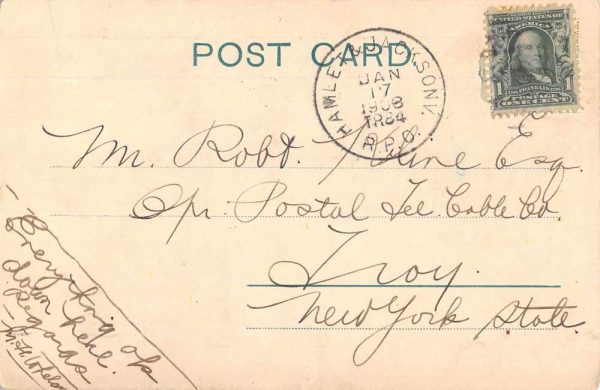 POST CARD.
HAMLET & JACKSONV.
JAN
17
1908
TR84
R.P.O.
UNITED STATES OF
AMERICA
1
FRANKLIN
1
POSTAGE
ONE CENT
Mr. Robt. Esq.
Opr Postal Tel. Cable Co.
Troy.
New York State.
Everything ok
down here.
Regards